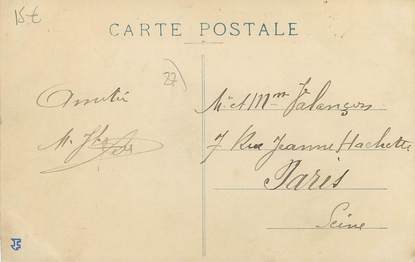 15€
CARTE POSTALE
22)
Amitié
M.
Mr et Mme Valançon
7 Rue Jeanne Hachette
Paris
Seine